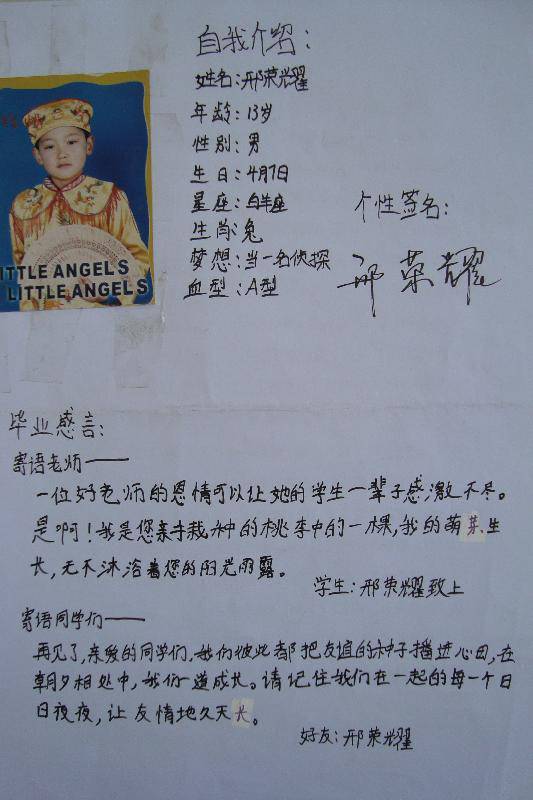 自我介绍:
姓名:邢荣耀
年龄:13岁
性别:男
生日:4月7日
星座:白羊座
生肖:兔
梦想:当一名侦探
血型:A型
个性签名:
邢荣耀
ITTLE ANGELS
LITTLE ANGELS
毕业感言:
寄语老师——
一位好老师的恩情可以让她的学生一辈子感激不尽。
是啊!我是您亲手栽种的桃李中的一棵,我的萌芽生
长,无不沐浴着您的阳光雨露。
学生:邢荣耀致上
寄语同学们——
再见了,亲爱的同学们,我们彼此都把友谊的种子播进心田,在
朝夕相处中,我们一道成长。请记住我们在一起的每一个日
日夜夜,让友情地久天长。
好友:邢荣耀